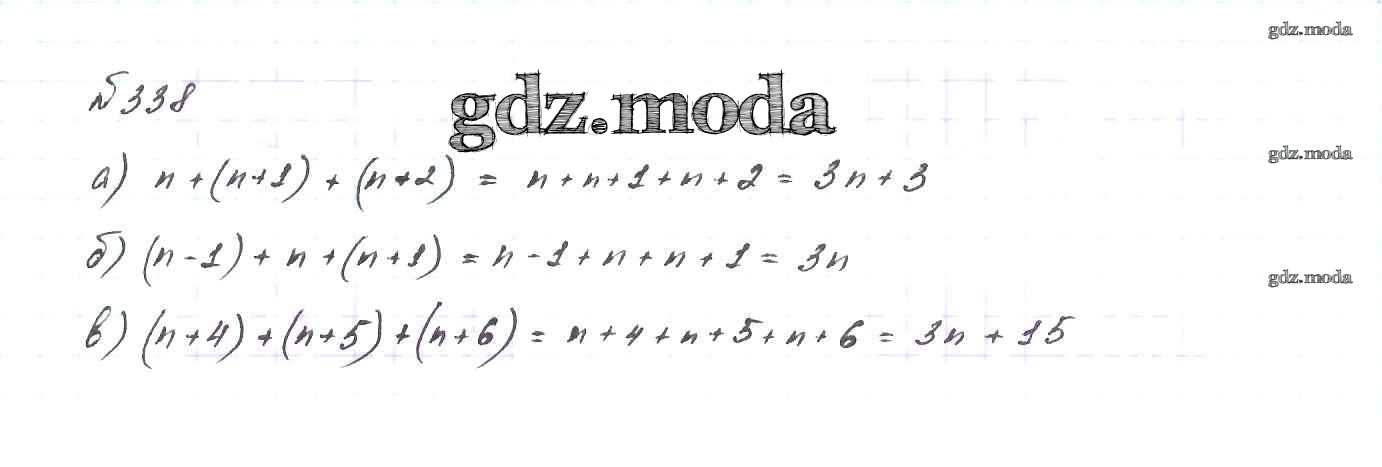 gdz.moda
№338
gdz.moda
gdz.moda
а) n + (n+1) + (n+2) = n+n+1+n+2 = 3n+3
б) (n-1) + n + (n+1) = n-1+n+n+1 = 3n
gdz.moda
в) (n+4) + (n+5) + (n+6) = n+4+n+5+n+6 = 3n + 15